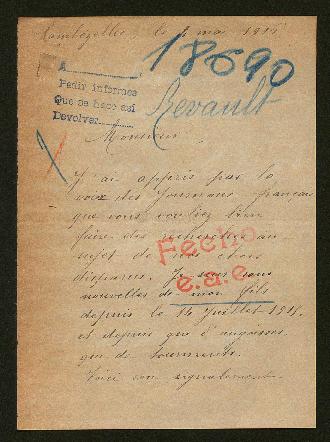 le 4 mai 1915
18690
A
Pedir informes
Que se hace así
Devolver
Revault
Monsieur,
J'ai appris par la
voix des Journaux français
que vous vouliez bien
faire des recherches au
sujet de nos chers
disparus. Je suis sans
nouvelles de mon fils
depuis le 14 Juillet 1915,
et depuis que d'angoisses
que de tourments.
Voici son signalement
Fecho
e.a.e.